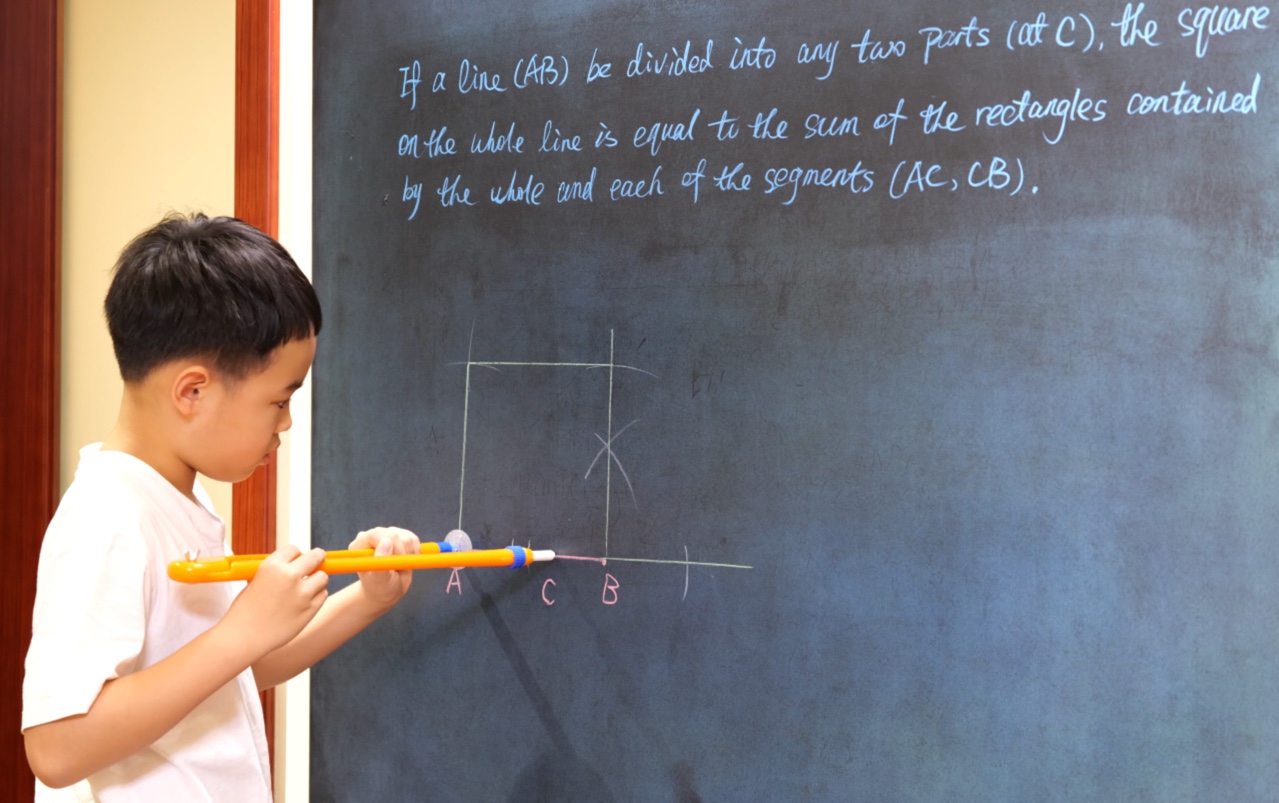 If a line (AB) be divided into any two parts (at C), the square
on the whole line is equal to the sum of the rectangles contained
by the whole and each of the segments (AC, CB).
A C B